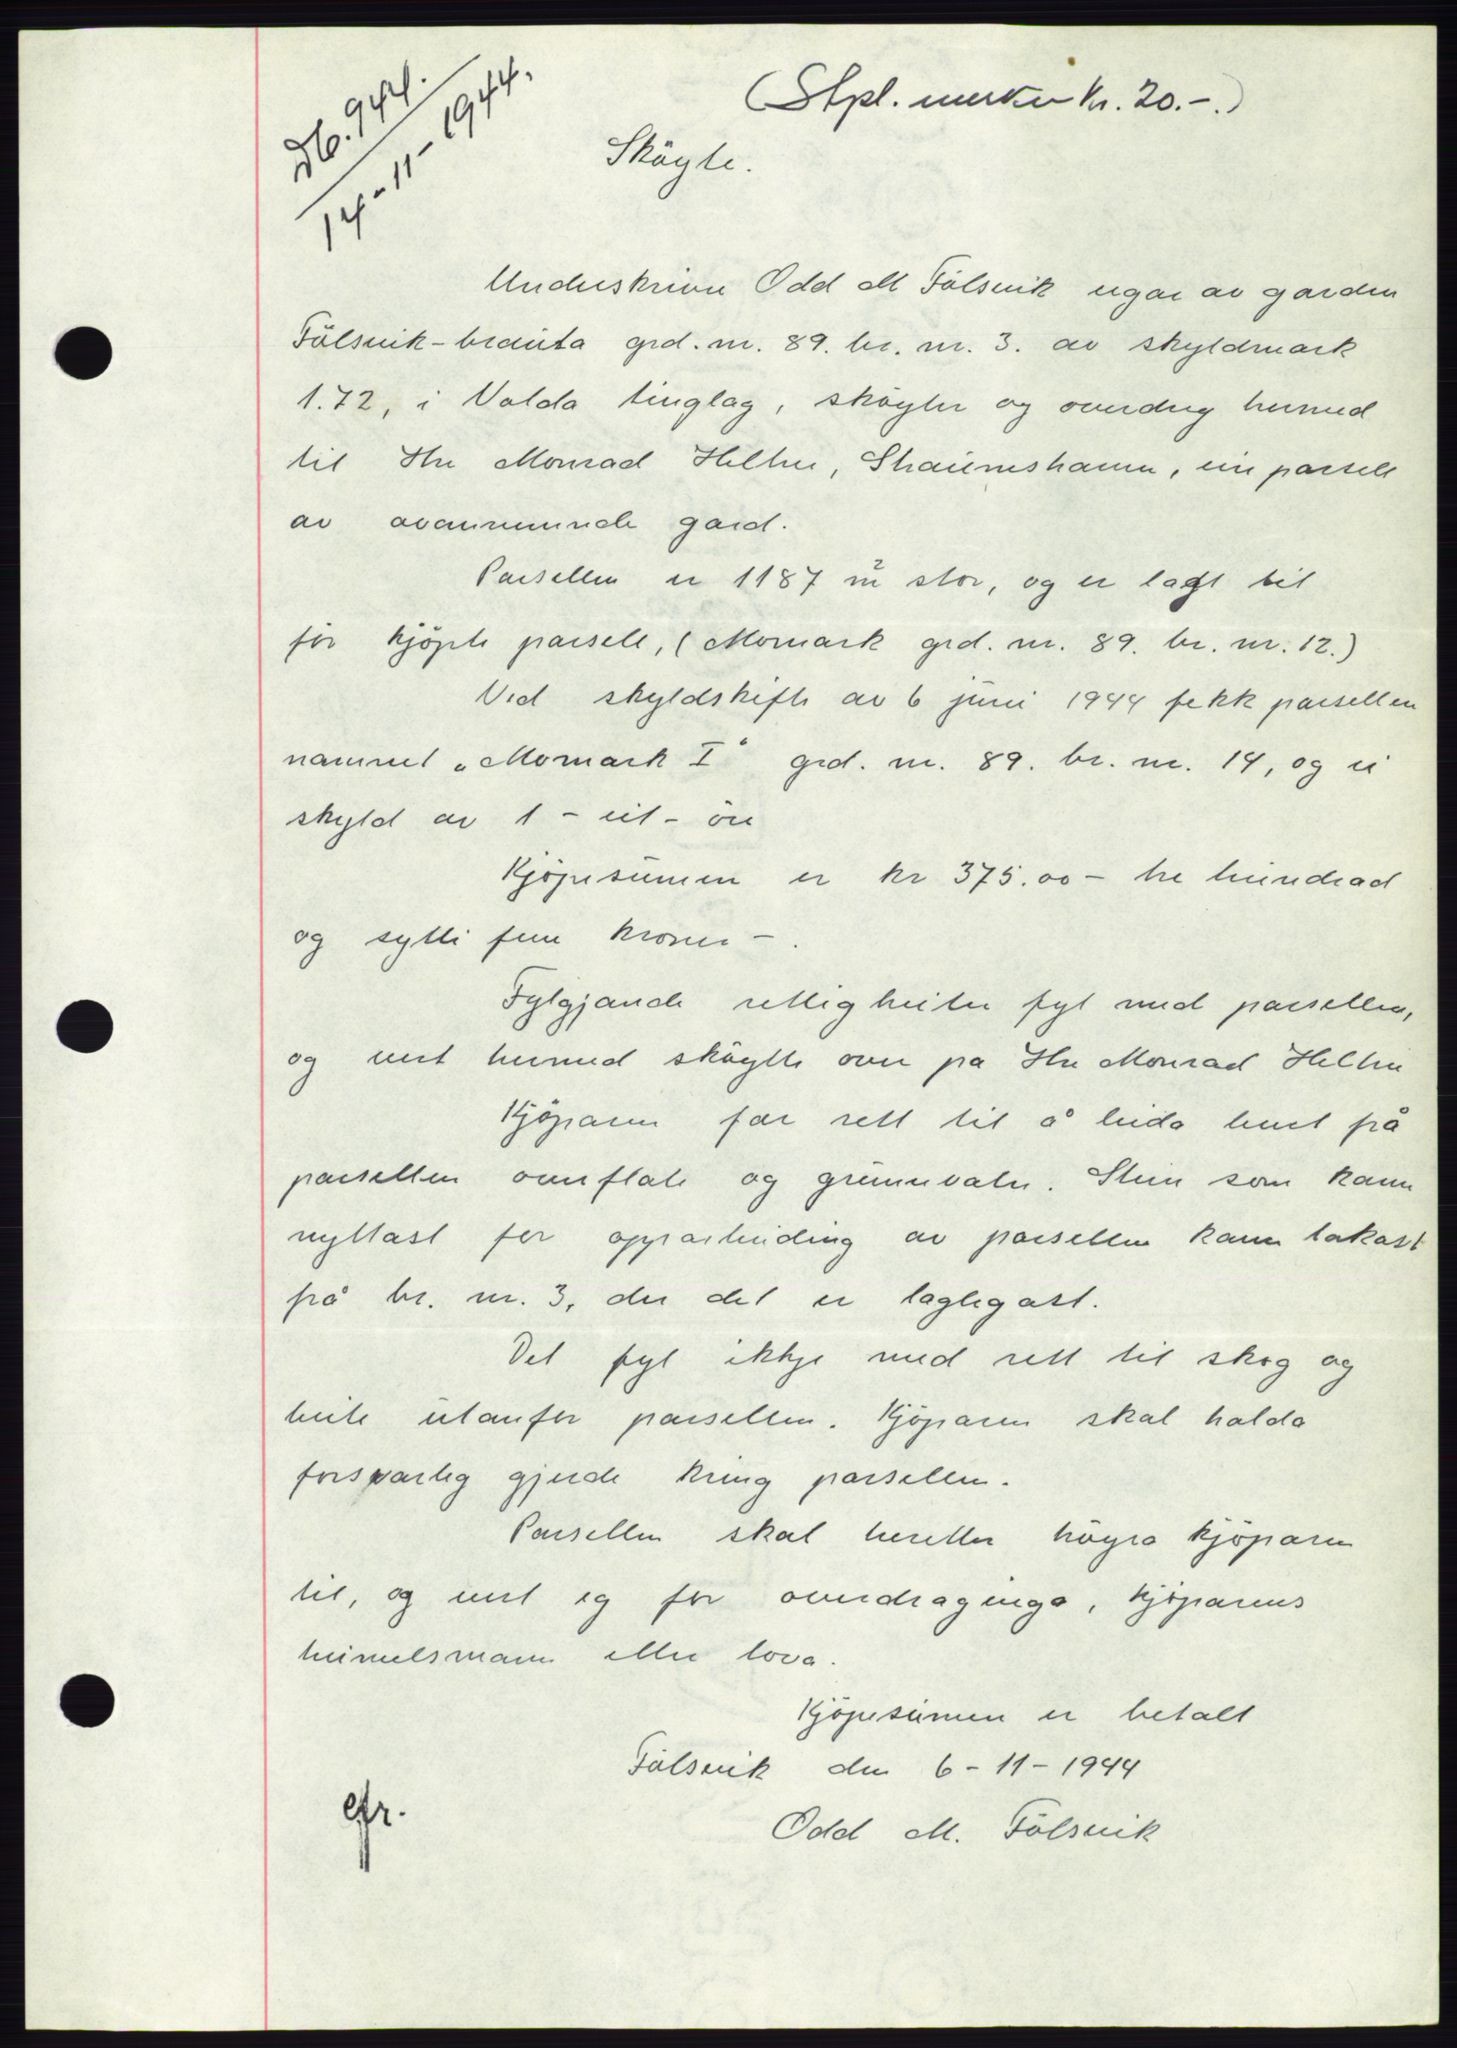 Db. 944.
14-11-1944.
(Stpl. merker kr. 20.-.)
Sköyte.
Underskriven Odd M Fölsvik eigar av garden
Fölsvik-brauta grd. nr. 89. br. nr. 3. av skyldmark
1.72, i Volda tinglag, sköyter og overdreg hermed
til Hr Monrad Heltne, Straumshamn, ein parsell
av ovannemnde gard.
Parsellen er 1187 m² stor, og er lagt til
för kjöpte parsell, (Momark grd. nr. 89. br. nr. 12.)
Ved skyldskifte av 6 juni 1944 fekk parsellen
namnet „Momark I“ grd. nr. 89. br. nr. 14, og ei
skyld av 1 - eit - öre
Kjöpesumen er kr 375.00 - tre hundrad
og sytti fem kroner - .
Fylgjande rettigheiter fyl med parsellen,
og vert hermed sköytte over på Hr Monrad Heltne
Kjöparen får rett til å leida bort på
parsellen overflate og grunnvatn. Stein som kann
nyttast for opparbeiding av parsellen kann takast
på br. nr. 3, der det er laglegast.
Det fyl ikkje med rett til skog og
beite utanfor parsellen. Kjöparen skal halda
forsvarleg gjerde kring parsellen.
Parsellen skal heretter höyra kjöparen
til, og vert eg for overdraginga, kjöparens
heimelsmann etter lova.
Kjöpesumen er betalt
Fölsvik den 6-11-1944
Odd M. Fölsvik